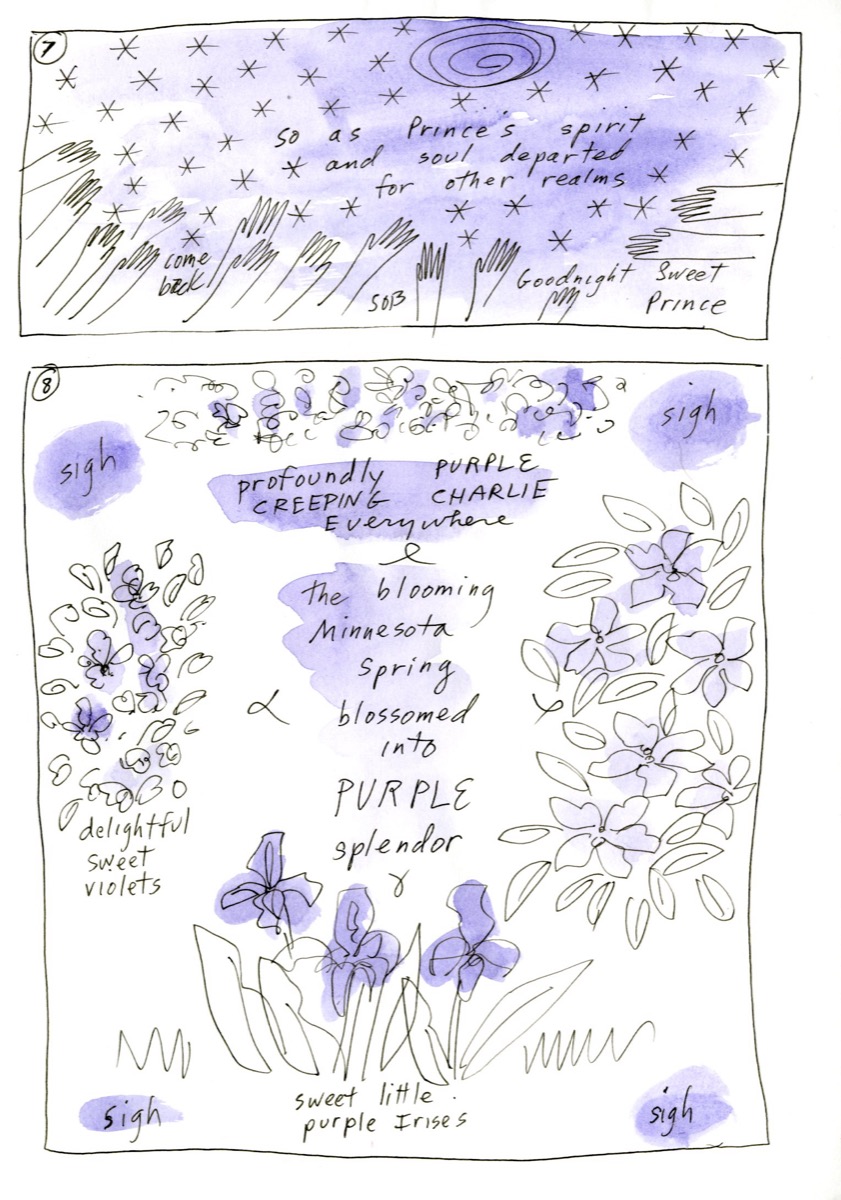 7
so as Prince's spirit
and soul departed
for other realms
come
back
SOB
Goodnight Sweet
Prince
8
sigh
sigh
profoundly PURPLE
CREEPING CHARLIE
Everywhere
the blooming
Minnesota
Spring
blossomed
into
PURPLE
splendor
delightful
sweet
violets
sweet little
purple Irises
sigh
sigh